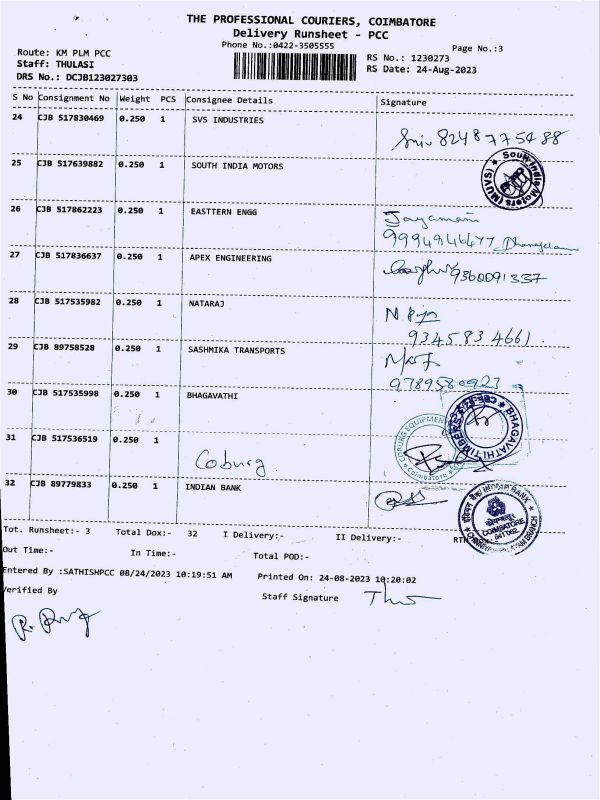 THE PROFESSIONAL COURIERS, COIMBATORE
Delivery Runsheet - PCC
Phone No.:0422-3505555
Page No.:3
Route: KM PLM PCC
Staff: THULASI
DRS No.: DCJB123027303
RS No.: 1230273
RS Date: 24-Aug-2023
S No Consignment No Weight PCS Consignee Details Signature
24 CJB 517830469 0.250 1 SVS INDUSTRIES
8248775488
25 CJB 517639882 0.250 1 SOUTH INDIA MOTORS
South India Motors (MUVS)
26 CJB 517862223 0.250 1 EASTTERN ENGG Jayamani
9994946477
27 CJB 517836637 0.250 1 APEX ENGINEERING 9360091337
28 CJB 517535982 0.250 1 NATARAJ
9345834661
29 CJB 89758528 0.250 1 SASHMIKA TRANSPORTS
9789580923
30 CJB 517535998 0.250 1 BHAGAVATHI
BHAGAVATHI TIMBERS
31 CJB 517536519 0.250 1
Coburg
COBURG EQUIPMENT
Coimbatore
32 CJB 89779833 0.250 1 INDIAN BANK
INDIAN BANK
COIMBATORE
Tot. Runsheet:- 3 Total Dox:- 32 I Delivery:- II Delivery:-
Out Time:- In Time:- Total POD:-
Entered By :SATHISHPCC 08/24/2023 10:19:51 AM Printed On: 24-08-2023 10:20:02
Verified By Staff Signature